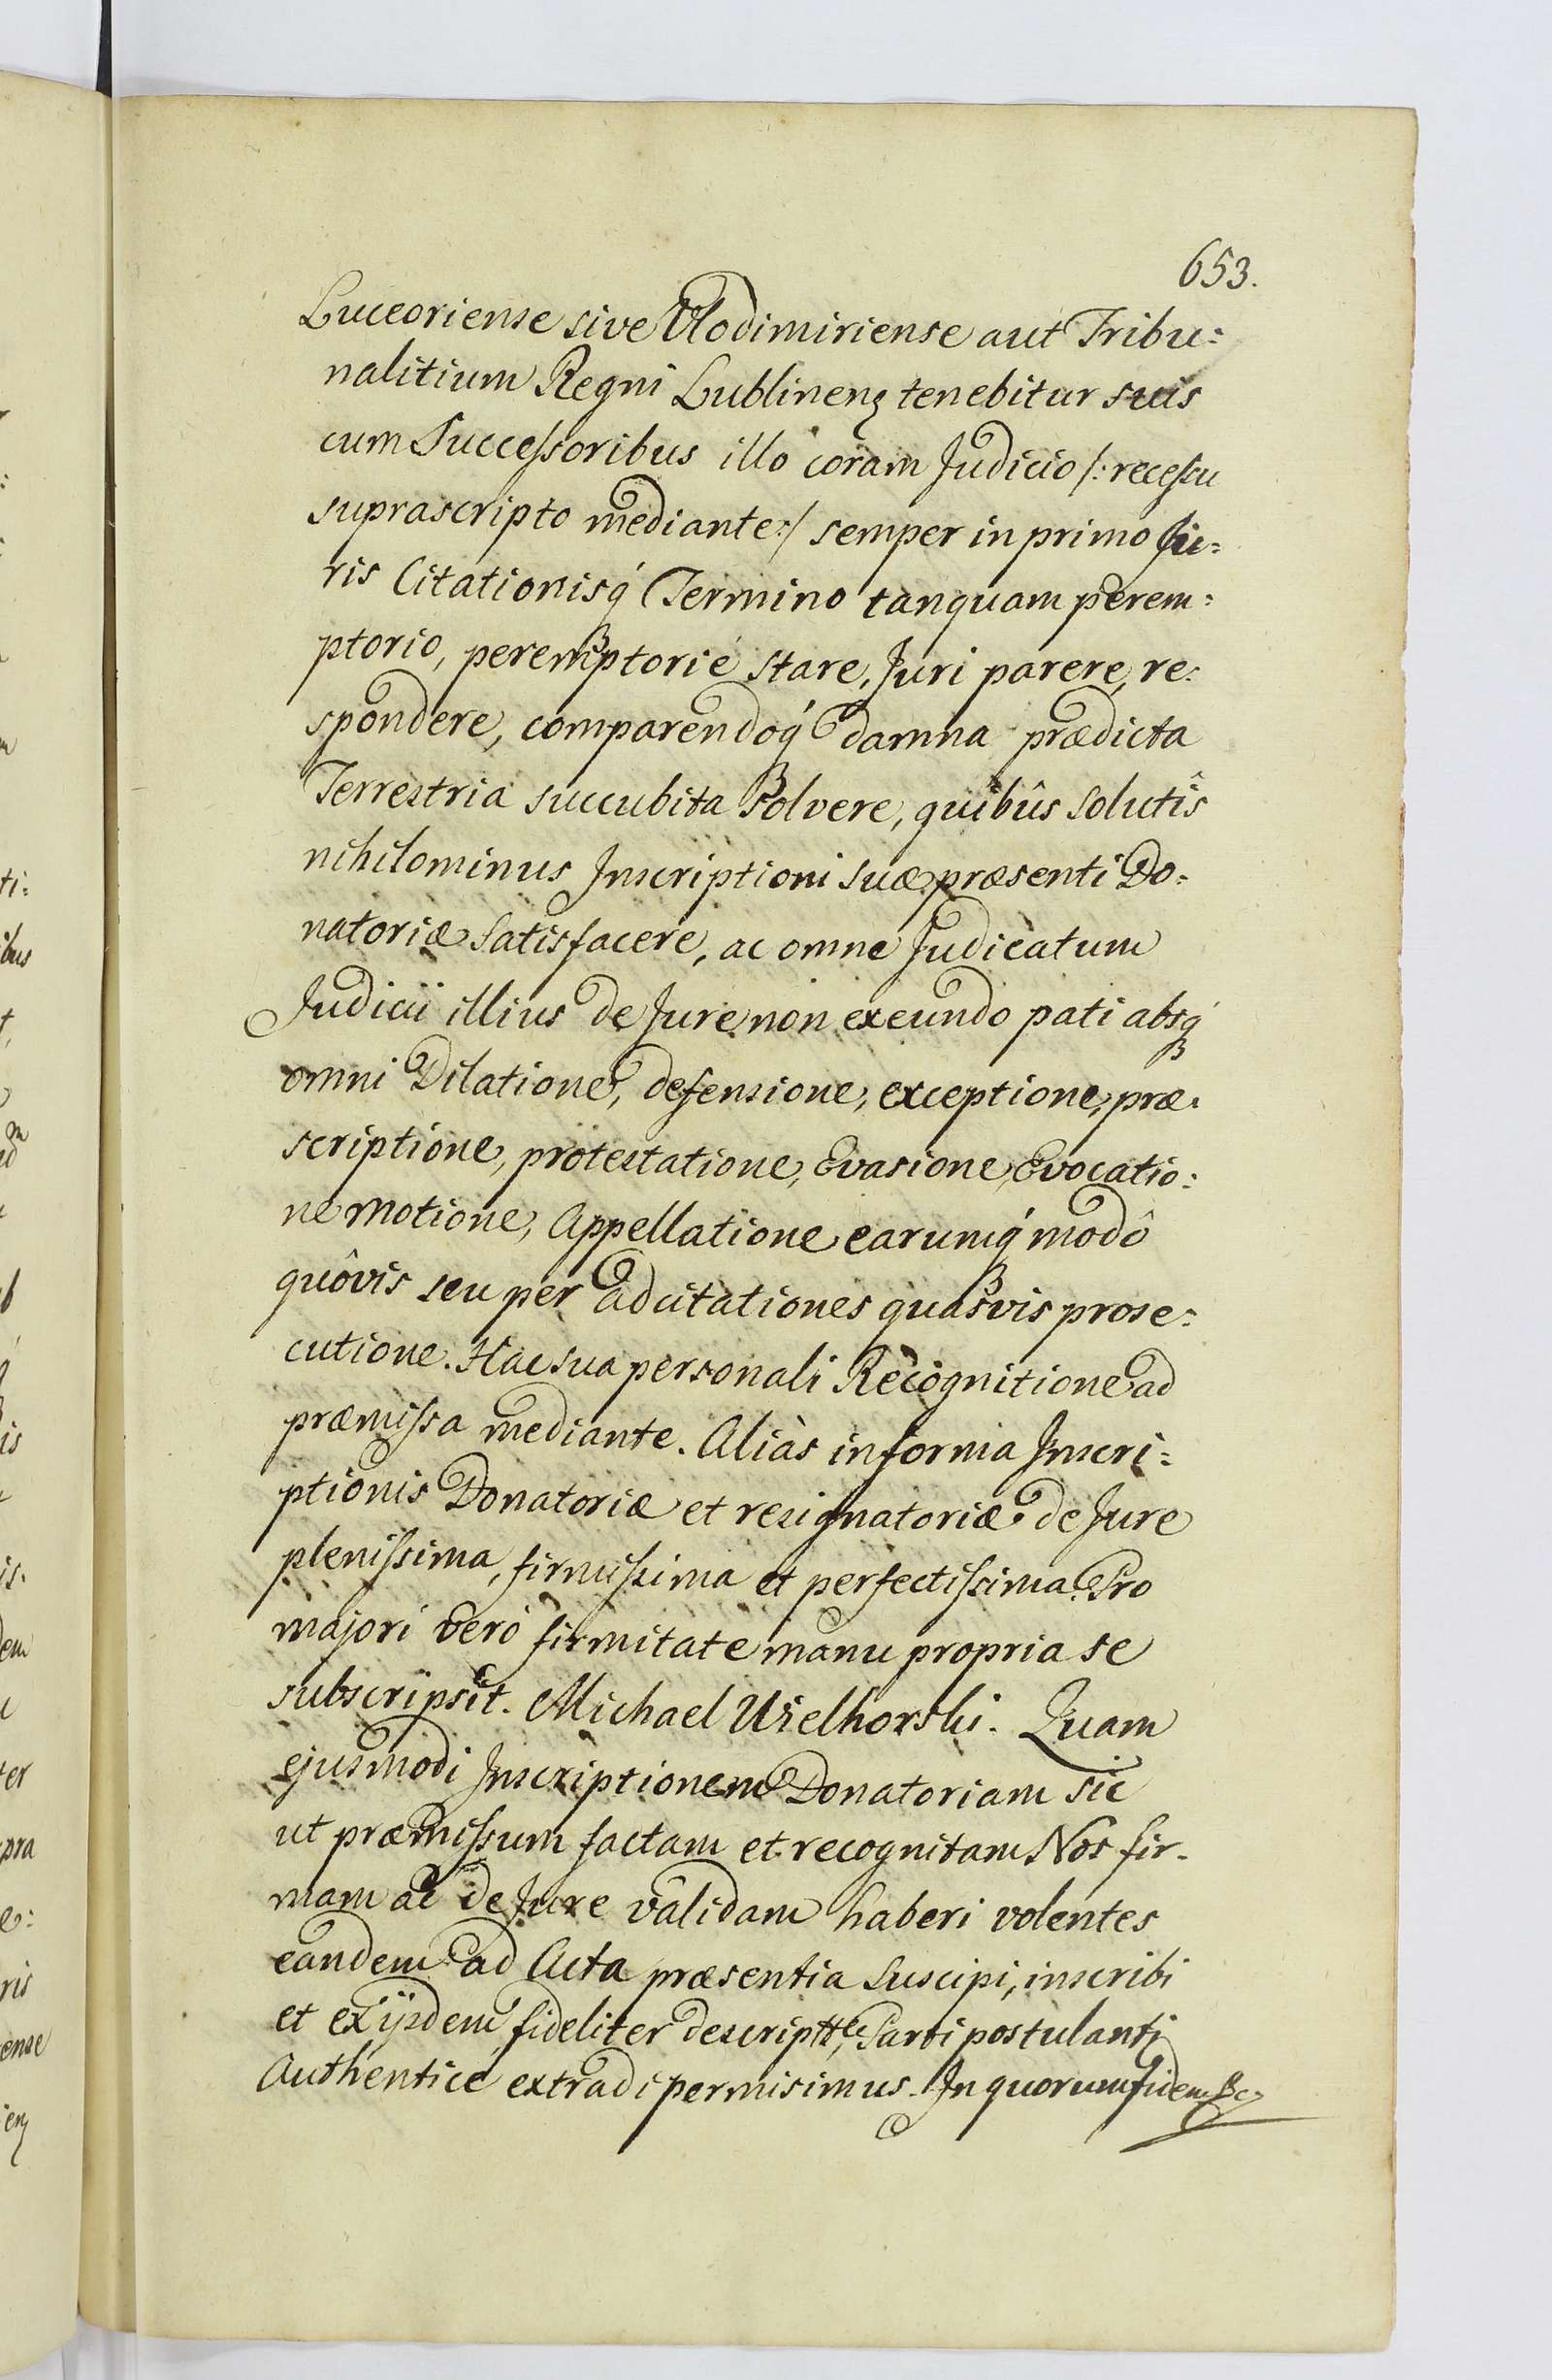 653.
Luceoriense sive Vlodimiriense aut Tribu:
nalitium Regni Lublinenȝ tenebitur suis
cum Succeſsoribus illo coram Judicio /: receſsu
suprascripto mediante :/ semper in primo Ju:
ris Citationisq́ Termino tanquam perem:
ptorio, peremptorié stare, Juri parere, re:
spondere, comparendoq́ damna prædicta
Terrestria succubita solvere, quibûs solutîs
nihilominus Inscriptioni suæ præsenti Do:
natoriæ satisfacere, ac omne Judicatum
Judicii illius de Jure non exeundo pati absq́
omni Dilatione, defensione, exceptione, præ:
scriptione, protestatione, Evasione, Evocatio:
ne motione, Appellatione earumq́ modô
quôvis seu per adcitationes quasvis prose:
cutione. Hac sua personali Recognitione ad
præmiſsa mediante. Aliàs in forma Inscri:
ptionis Donatoriæ et resignatoriæ de Jure
pleniſsima, firmiſsima et perfectiſsima. Pro
majori veró firmitate manu propria se
subscripsit. Michael Wielhorski. Quam
ejusmodi Inscriptionem Donatoriam sic
ut præmiſsum factam et recognitam Nos fir-
mam ac de Jure validam haberi volentes
eandem ad Acta præsentia suscipi, inscribi
et ex ijsdem fideliter descriptte, Parti postulanti
Authenticè extradi permisimus. In quorum fidem &c
ti:
ibus
m
is
is.
dem
ter
pra
ris
ense
enȝ